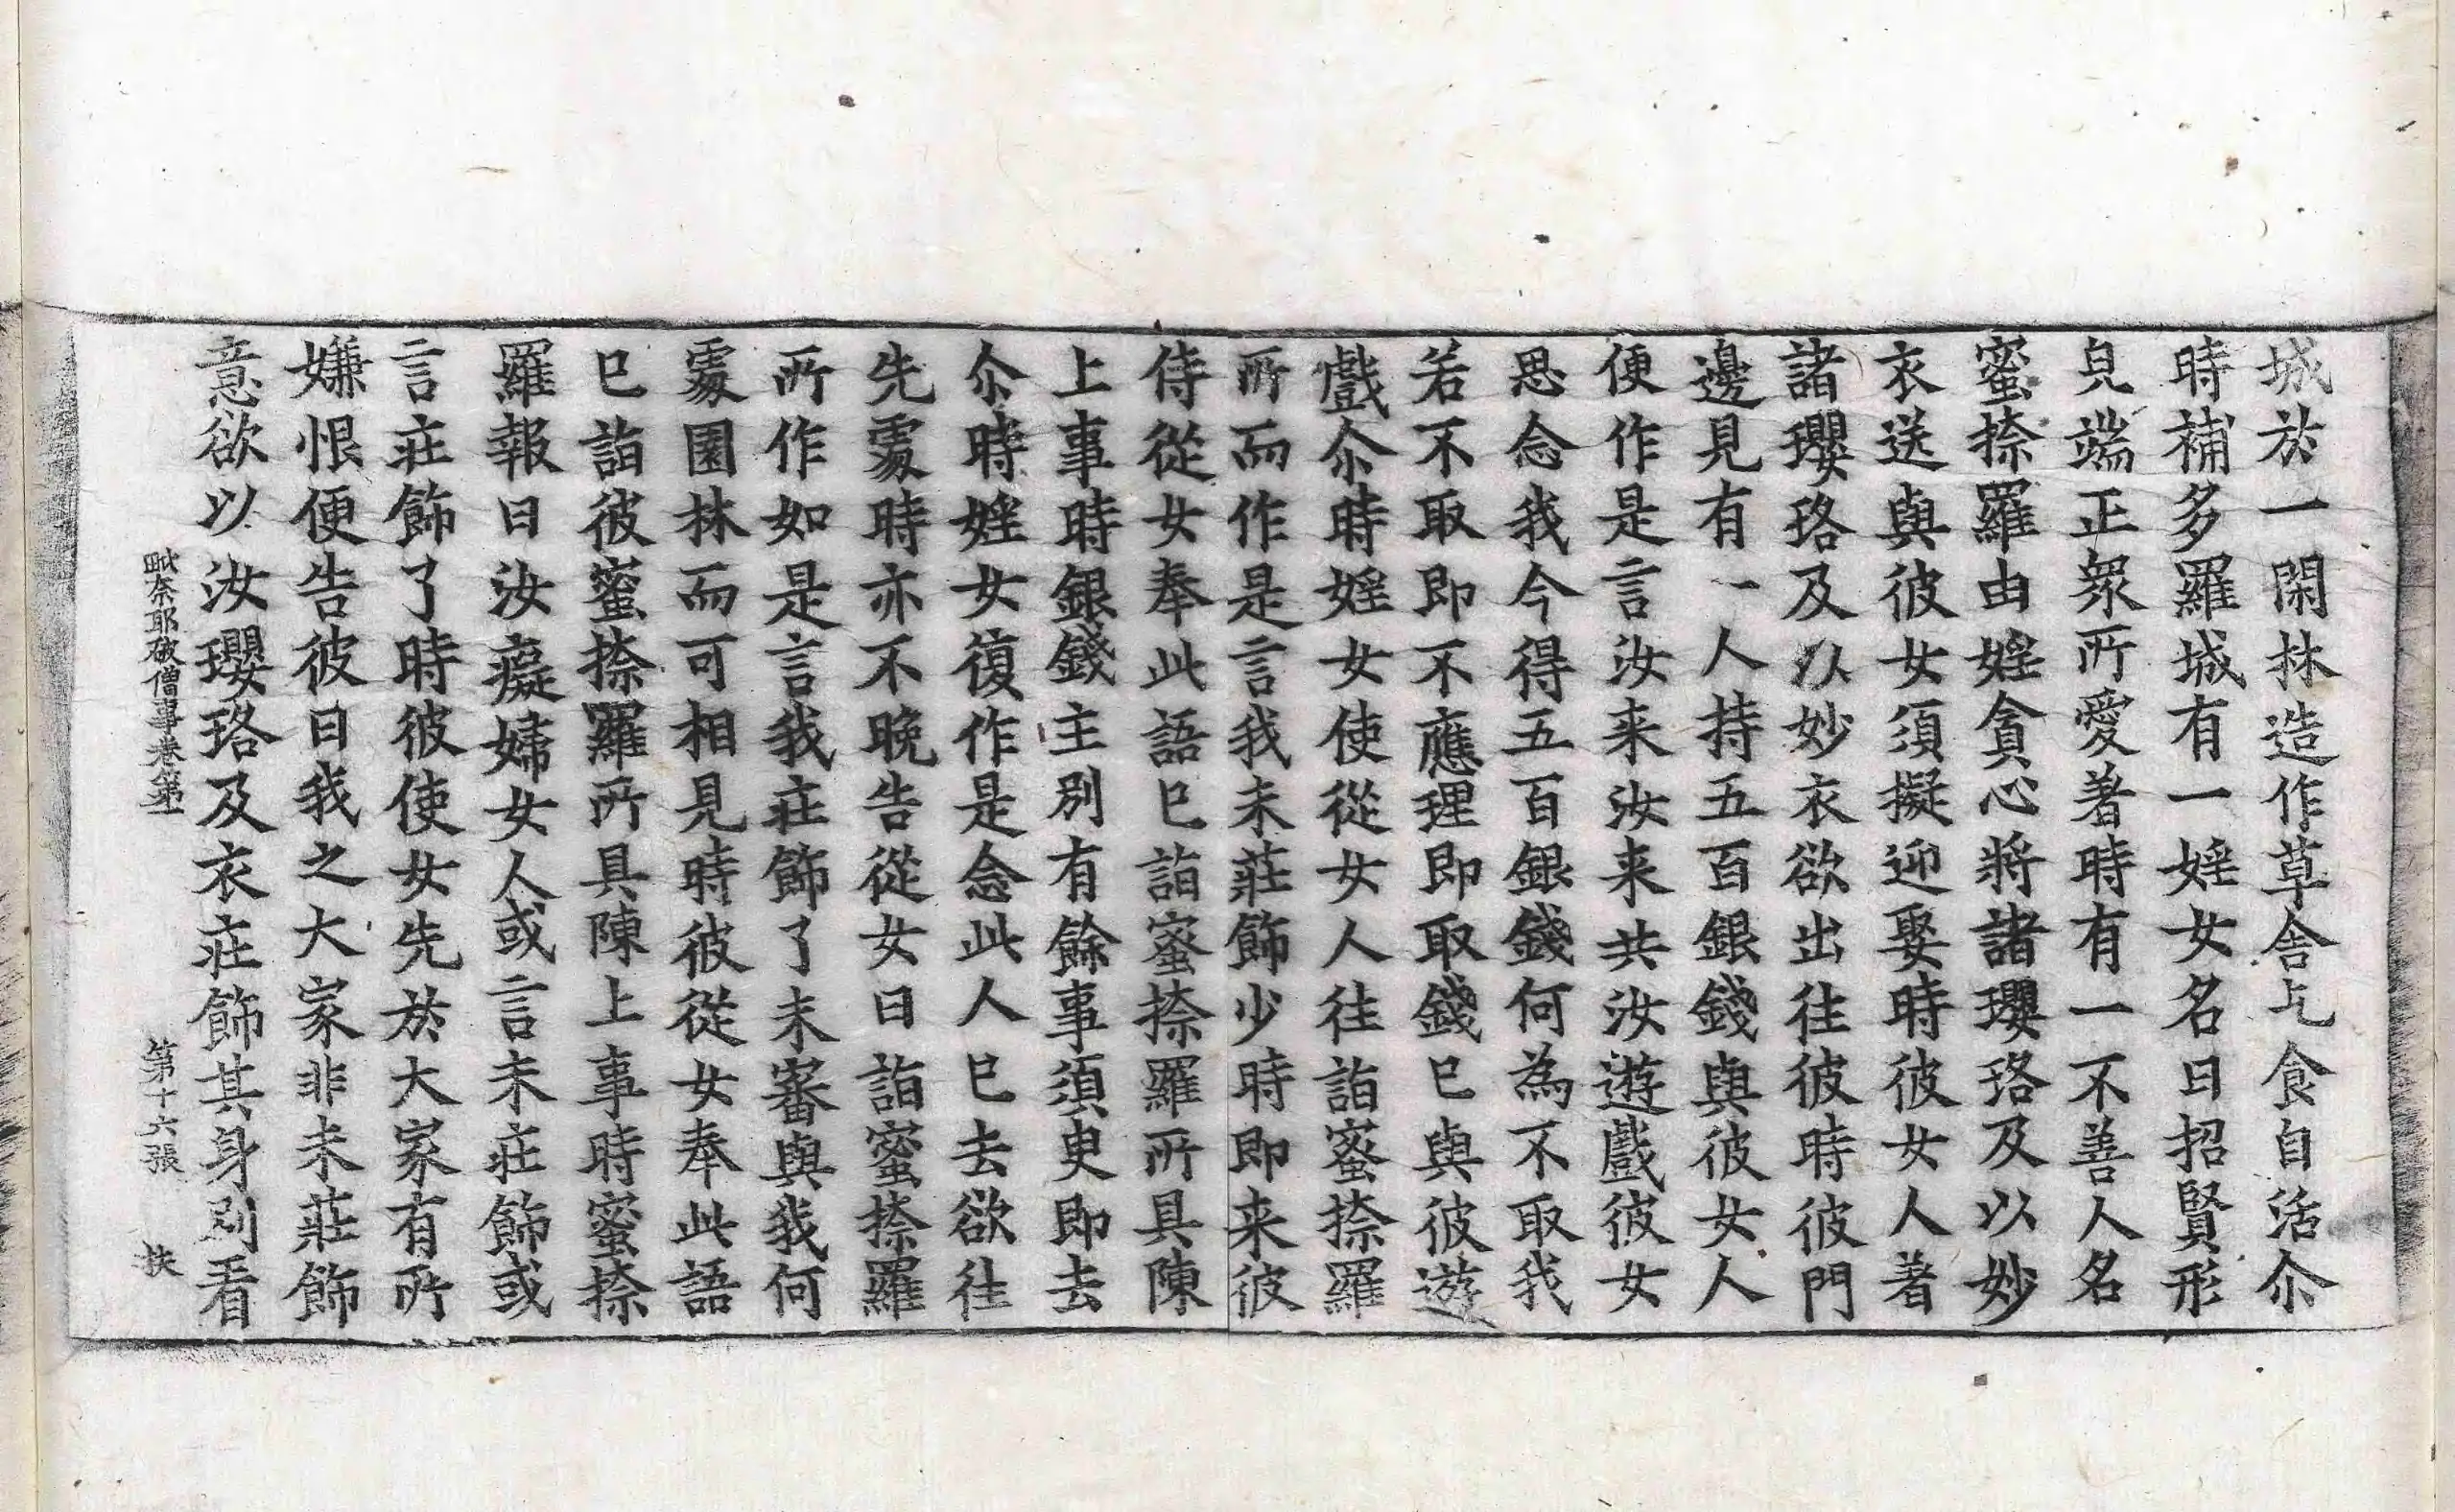 城於一閑林造作草舍乞食自活尒
時補多羅城有一婬女名曰招賢形
皃端正衆所愛著時有一不善人名
蜜捺羅由婬貪心將諸瓔珞及以妙
衣送與彼女須擬迎娶時彼女人著
諸瓔珞及以妙衣欲出往彼時彼門
邊見有一人持五百銀錢與彼女人
便作是言汝来汝来共汝遊戲彼女
思念我今得五百銀錢何為不取我
若不取即不應理即取錢已與彼遊
戲尒時婬女使從女人往詣蜜捺羅
所而作是言我未莊飾少時即来彼
侍從女奉此語已詣蜜捺羅所具陳
上事時銀錢主別有餘事須臾即去
尒時婬女復作是念此人已去欲往
先處時亦不晚告從女曰詣蜜捺羅
所作如是言我庄飾了未審與我何
處園林而可相見時彼從女奉此語
已詣彼蜜捺羅所具陳上事時蜜捺
羅報曰汝癡婦女人或言未庄飾或
言莊飾了時彼使女先於大家有所
嫌恨便告彼曰我之大家非未莊飾
意欲以汝瓔珞及衣庄飾其身別看
毗奈耶破僧事卷第一 第十六張 扶